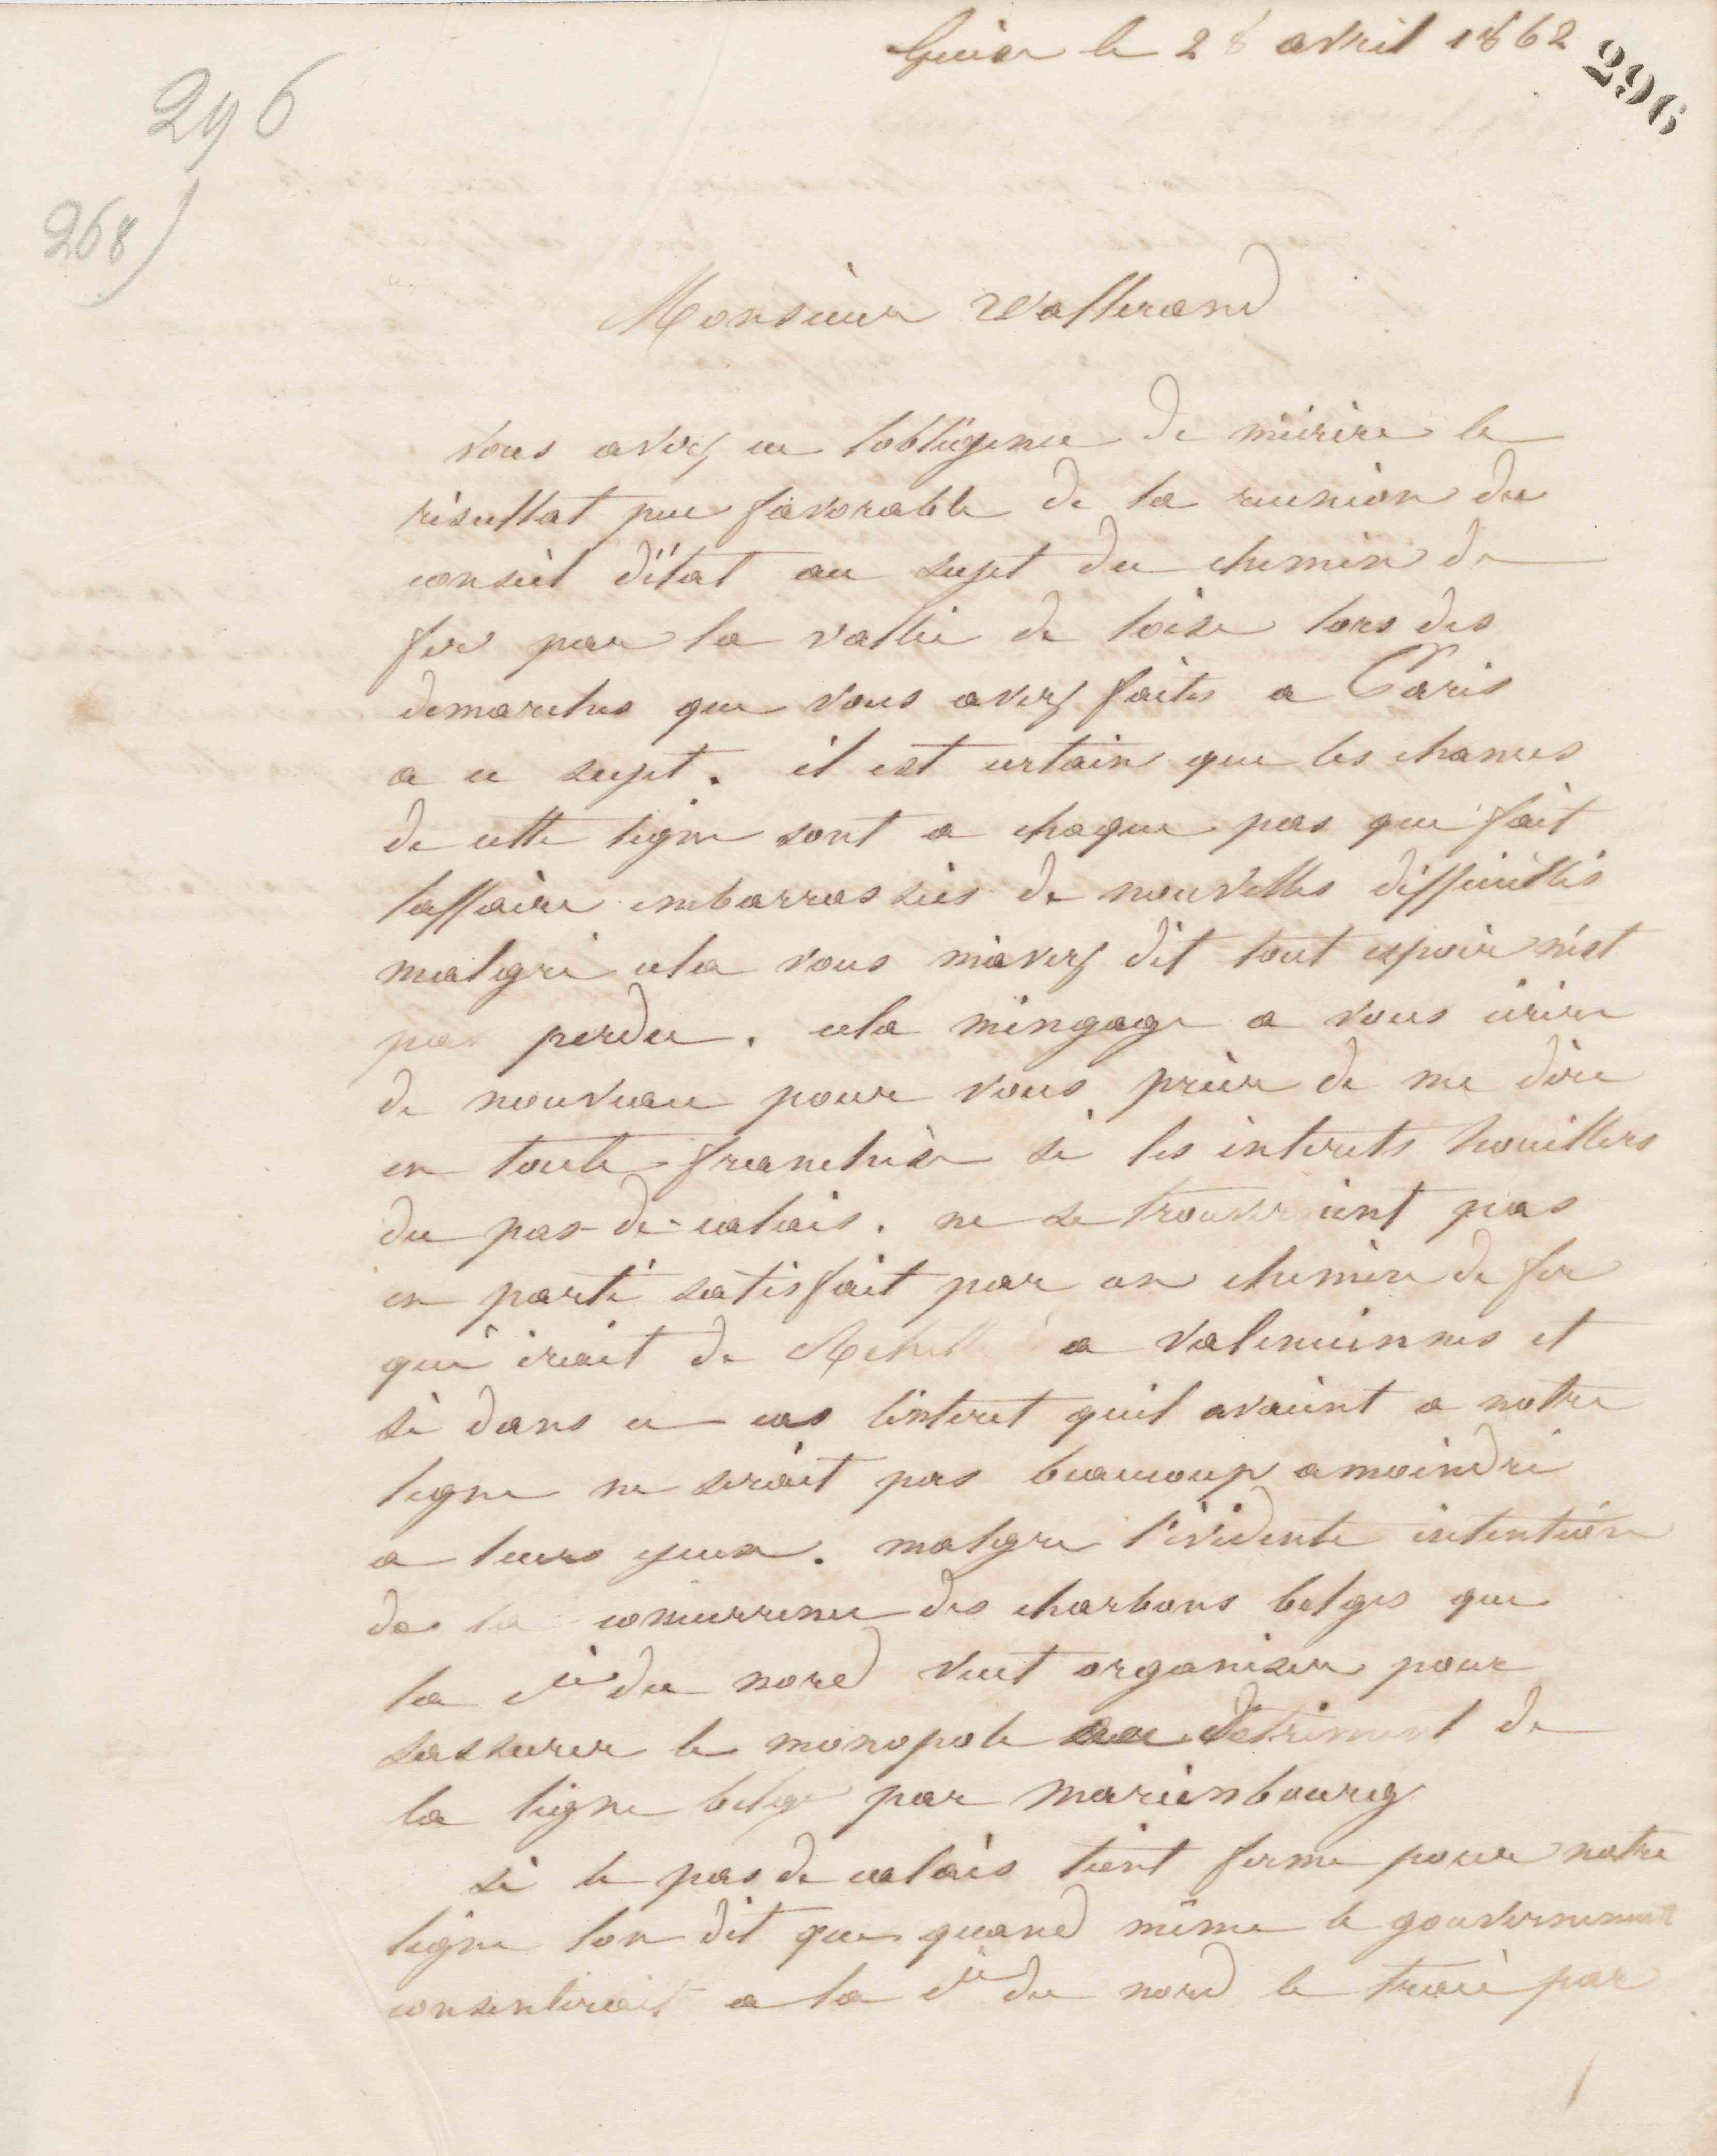 Guise le 28 avril 1862
296
296
268)
Monsieur Vallerand
vous avez eu lobligence de m'écrire le
résultat peu favorable de la reunion du
conseil d'état au sujet du chemin de
fer par la vallée de loise lors des
demarches que vous avez faites a Paris
a ce sujet. il est certain que les chances
de cette ligne sont a chaque pas que fait
laffaire embarrassées de nouvelles difficultés
malgré cela vous m'avez dit tout espoir n'est
pas perdu. cela m'engage a vous écrire
de nouveau pour vous prier de me dire
en toute franchise si les interets houillers
du pas-de-calais. ne se trouveraient pas
en parti satisfait par un chemin de fer
qui irait de a valenciennes et
si dans ce cas linteret quil avaient a notre
ligne ne serait pas beaucoup amoindri
a leurs yeux. malgre l'évidente intention
de la concurrence des charbons belges que
la Cie du nord veut organiser pour
sassurer le monopole au detriment de
la ligne belge par mariembourg
si le pas de calais tient ferme pour notre
ligne lon dit que quand même le gouvernement
consentirait a la Cie du nord le tracé par